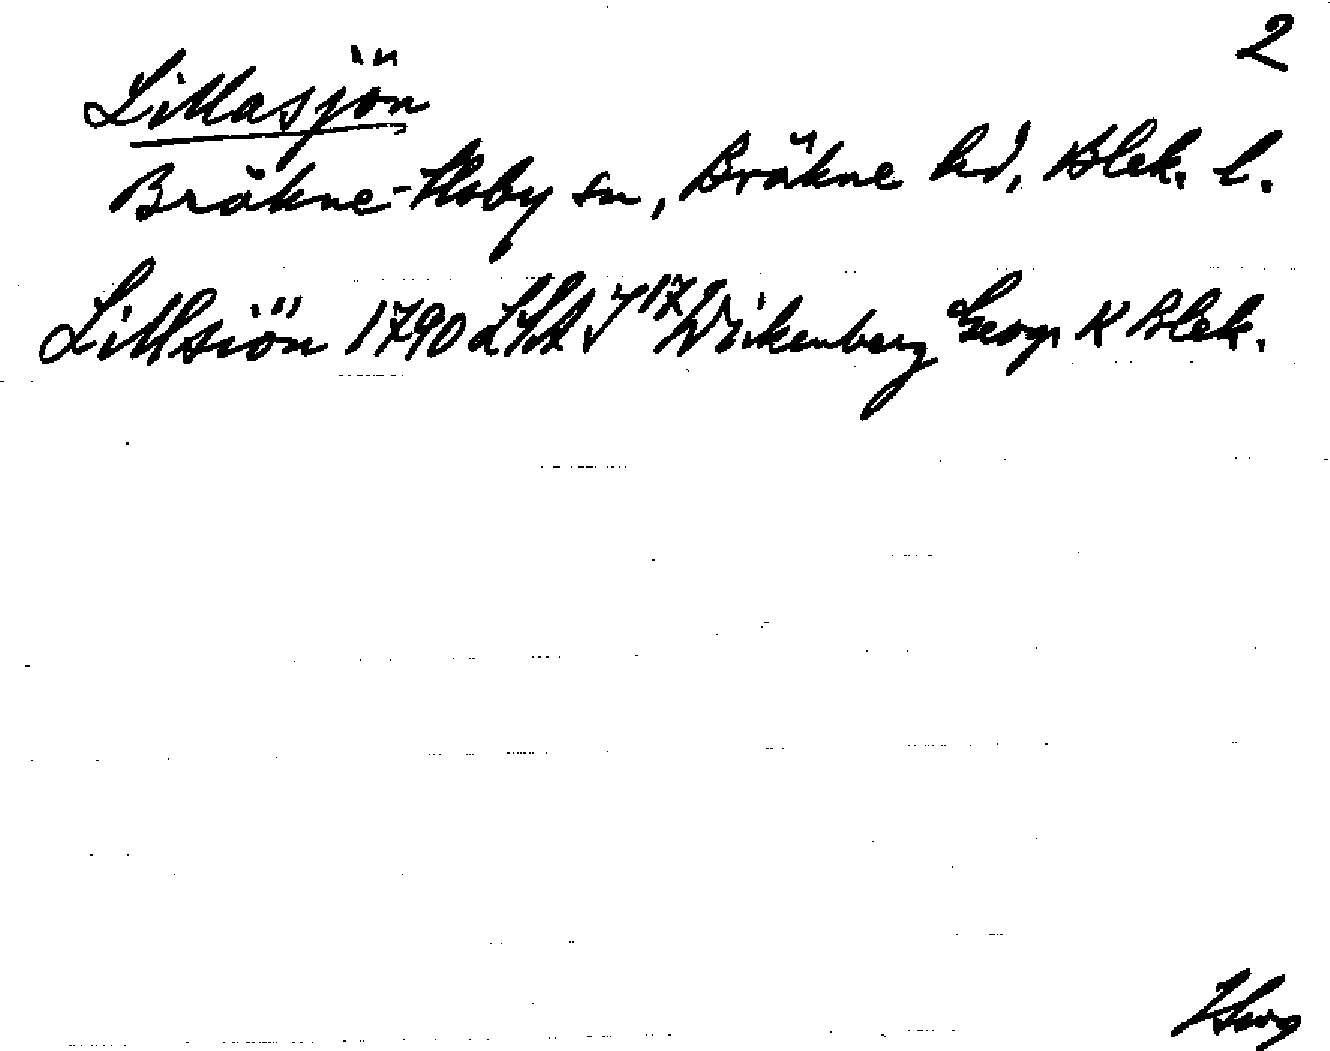 2
Lillasjön
Bräkne-Hoby sn, Bräkne hd, Blek. l.
Lillsiön 1790 LSA J 17 Wikenberg Geogr K Blek.